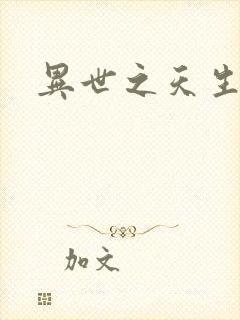 異世之天生
加文